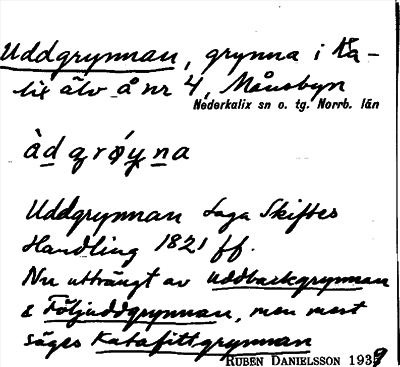 Uddgrynnan, grynna i Ka-
lix älv å nr 4, Månsbyn
Nederkalix sn o. tg. Norrb. län
Uddgrynnan Laga Skiftes
Handling 1821 ff.
Nu utträngt av Uddbackgrynnan
& Följuddgrynnan, men mest
säges Katafittgrynnan
RUBEN DANIELSSON 1939